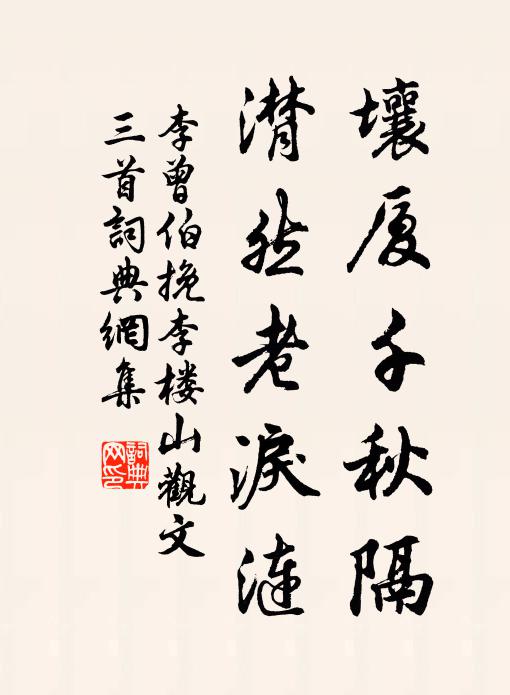 壤厚千秋隔
潸然老淚漣
李曾伯挽李楼山觀文
三首詞典網集
詞典网印